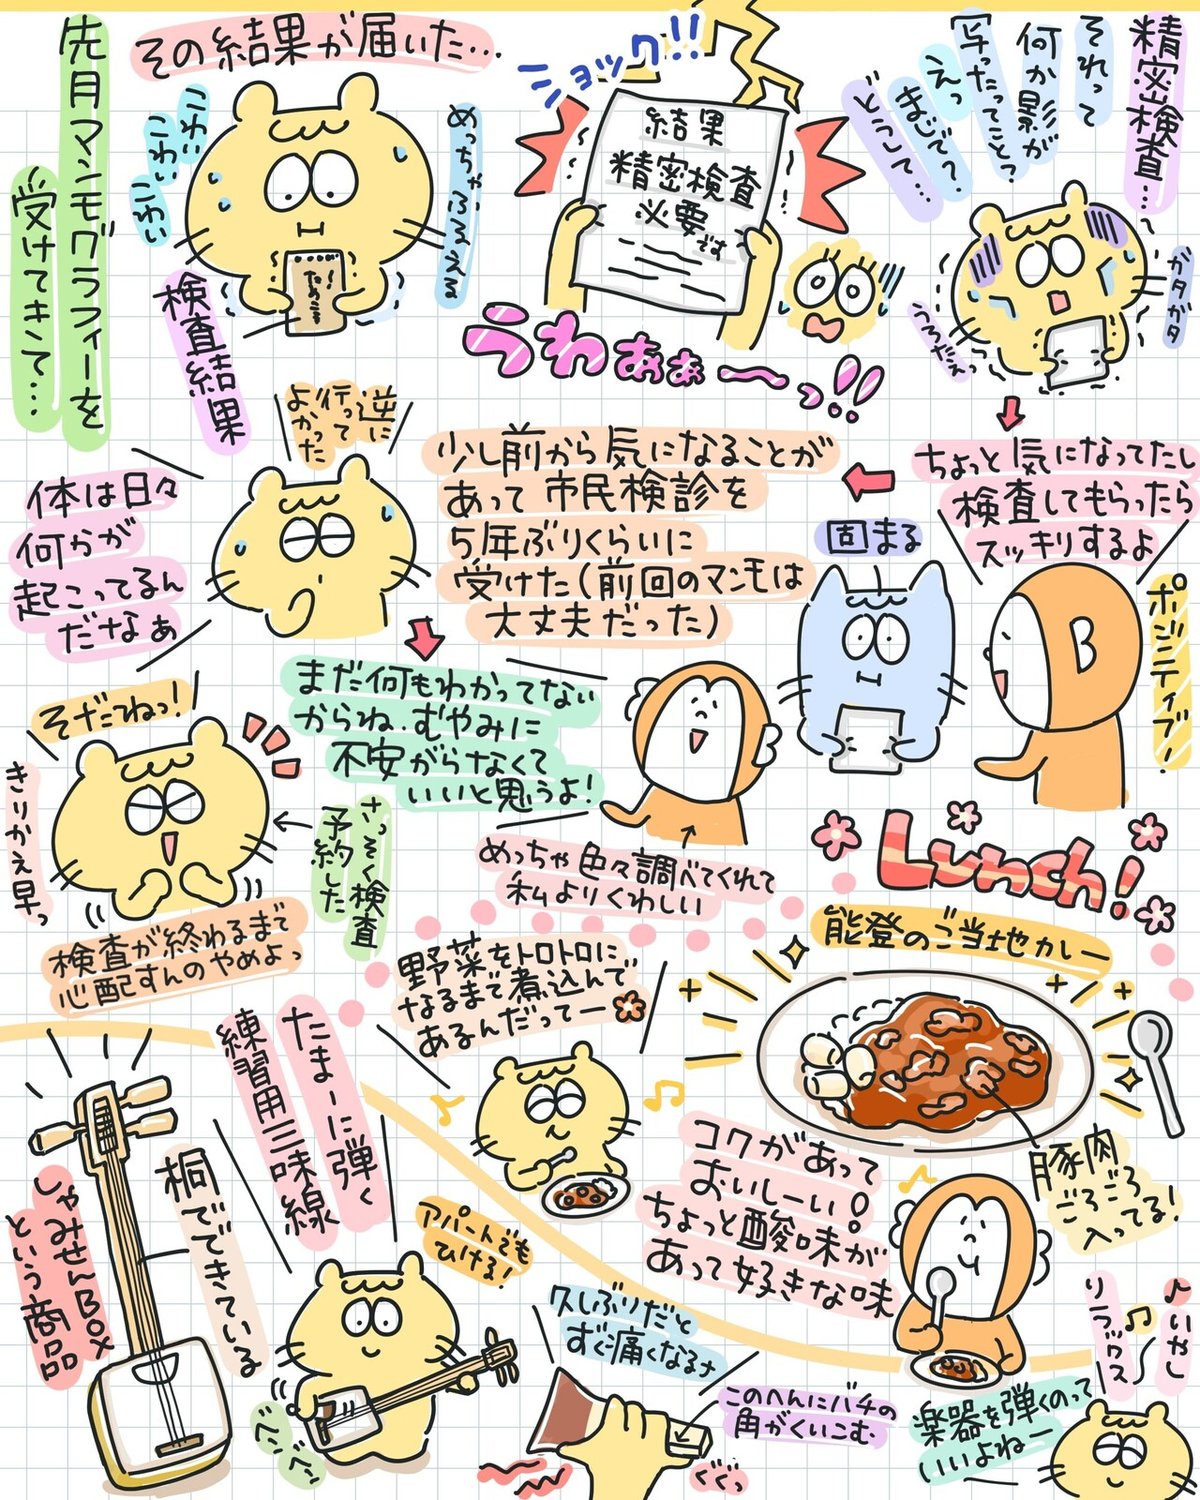 先月マンモグラフィーを
受けてきて…
その結果が届いた…
こわい
こわい
こわい
めっちゃふるえる
検査結果
ショック!!
結果
精密検査
必要です
うわぁぁーっ!!
精密検査…
それって
何か影が
写ったってこと?
えっ
まじで?
どうして…
ガタガタ
うろたえっ
ちょっと気になってたし
検査してもらったら
スッキリするよ
ポジティブ!
固まる
少し前から気になることが
あって市民検診を
5年ぶりくらいに
受けた(前回のマンモは
大丈夫だった)
逆に
行って
よかった
体は日々
何かが
起こってるん
だなぁ
まだ何もわかってない
からね、むやみに
不安がらなくて
いいと思うよ!
めっちゃ色々調べてくれて
私よりくわしい
そだねっ!
きりかえ早っ
さっそく検査
予約した
検査が終わるまで
心配すんのやめよっ
Lunch!
能登のご当地カレー
野菜をトロトロに
なるまで煮込んで
あるんだってー
豚肉
ごろごろ
入ってる!
コクがあって
おいしーい!
ちょっと酸味が
あって好きな味
たまーに弾く
練習用三味線
桐でできている
しゃみせんBOX
という商品
アパートでも
ひける!
ベンベン
久しぶりだと
すぐ痛くなるナ
このへんにバチの
角がくいこむ
ぐぐっ
楽器を弾くのって
いいよねー
いやし
リラックス